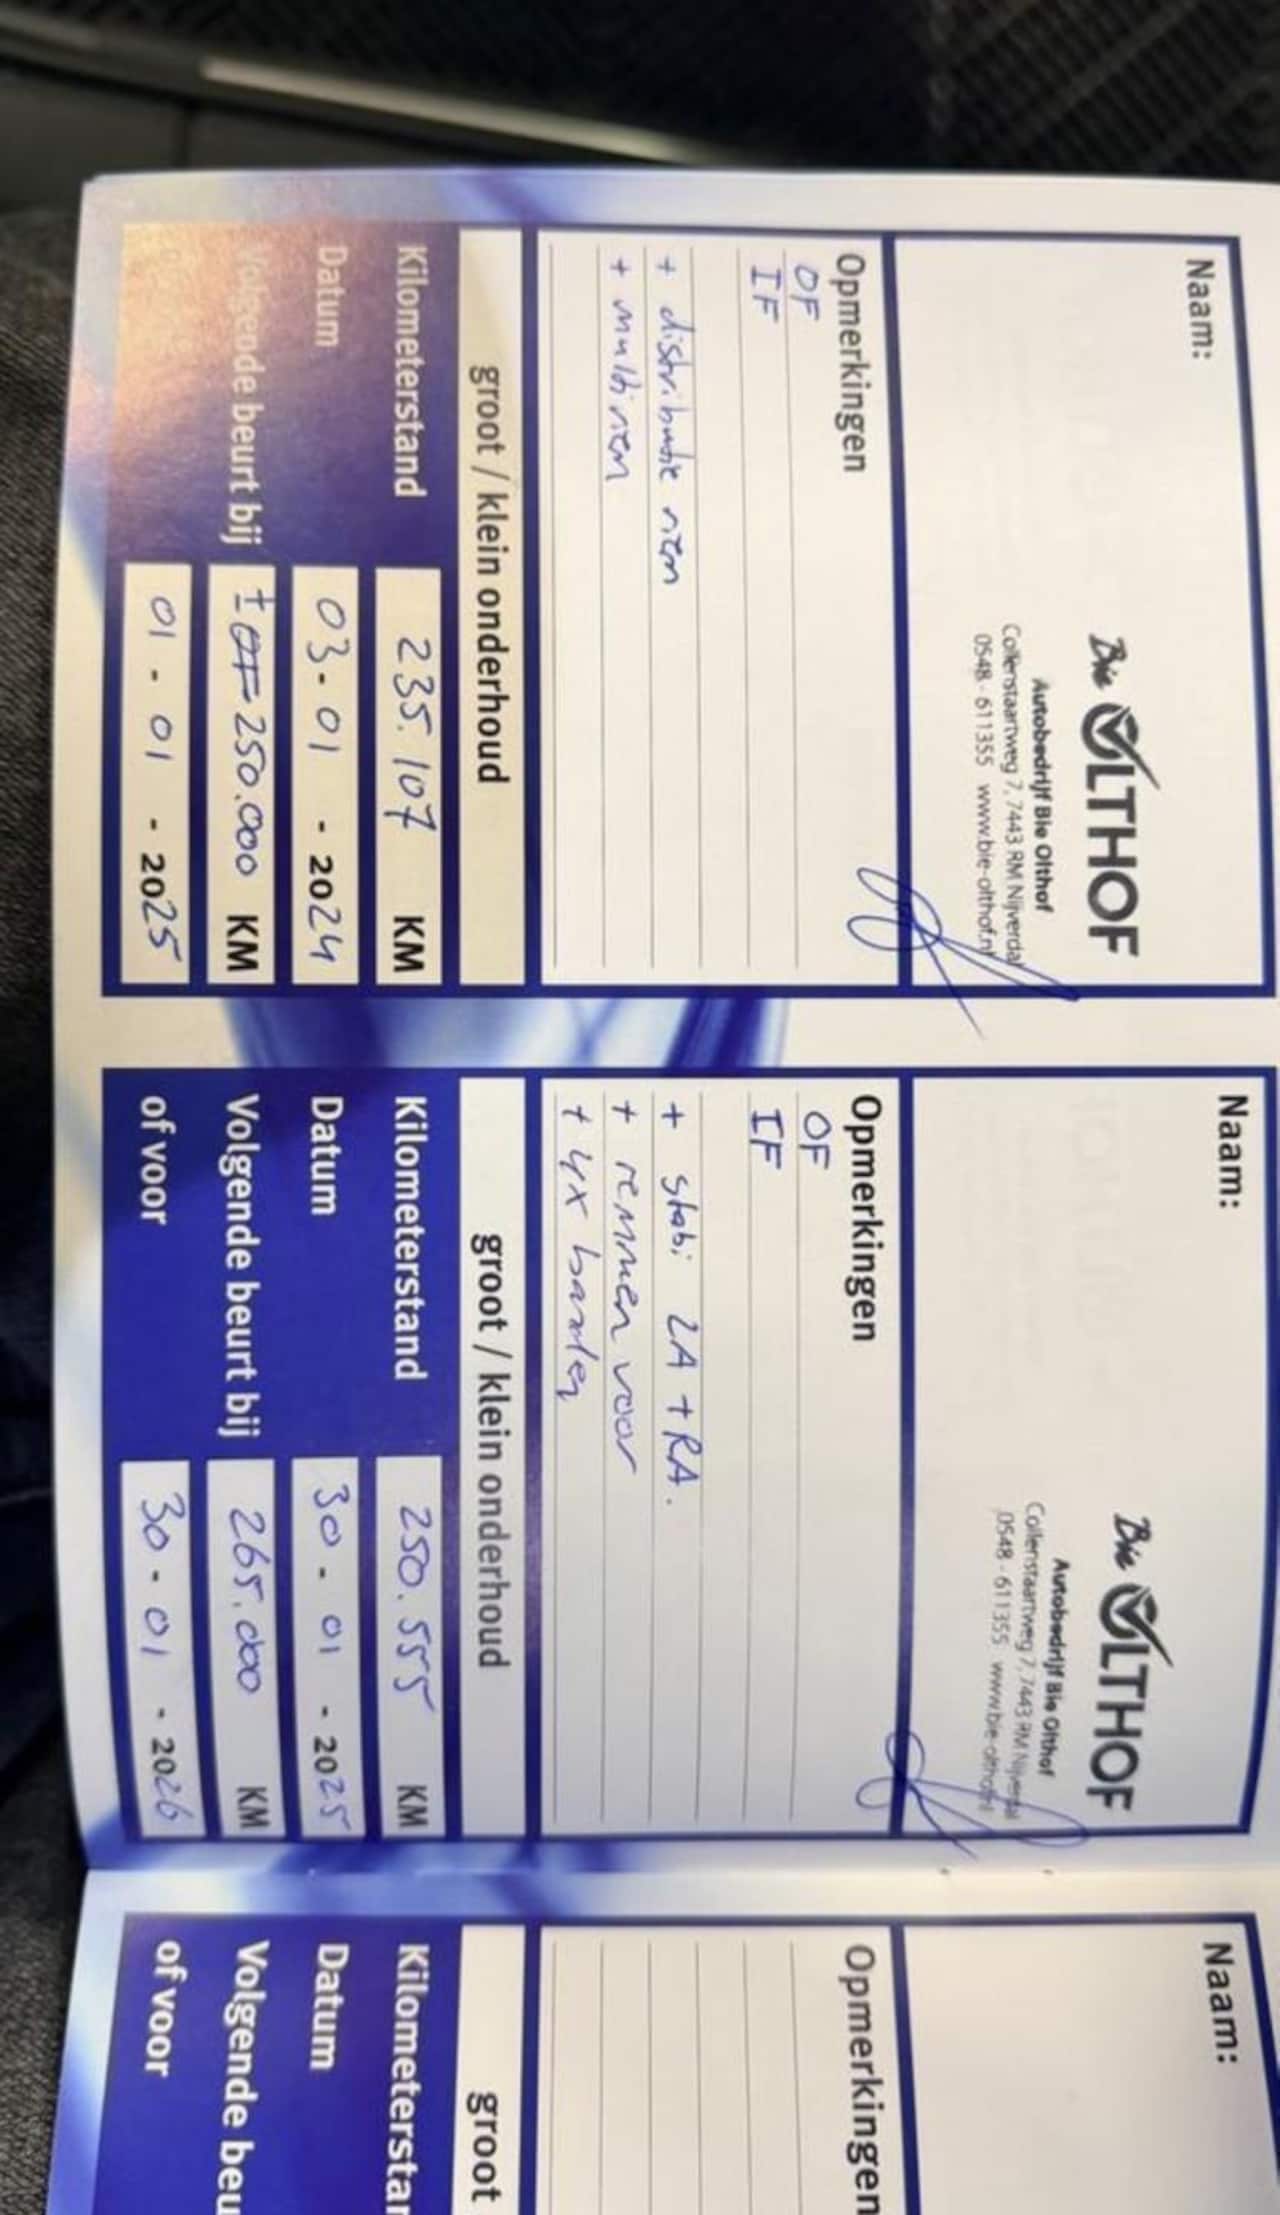 Naam:
Bie OLTHOF
Autobedrijf Bie Olthof
Collenstaartweg 7, 7443 RM Nijverdal
0548 - 611355 www.bie-olthof.nl
Opmerkingen
OF
IF
+ distributie riem
+ multiriem
groot / klein onderhoud
Kilometerstand 235.107 KM
Datum 03-01-2024
Volgende beurt bij ± 250.000 KM
of voor 01-01-2025
Naam:
Bie OLTHOF
Autobedrijf Bie Olthof
Collenstaartweg 7, 7443 RM Nijverdal
0548 - 611355 www.bie-olthof.nl
Opmerkingen
OF
IF
+ stabi LA + RA.
+ remmen voor
+ 4x banden
groot / klein onderhoud
Kilometerstand 250.555 KM
Datum 30-01-2025
Volgende beurt bij 265.000 KM
of voor 30-01-2026
Naam:
Opmerkingen
groot
Kilometerstan
Datum
Volgende beu
of voor